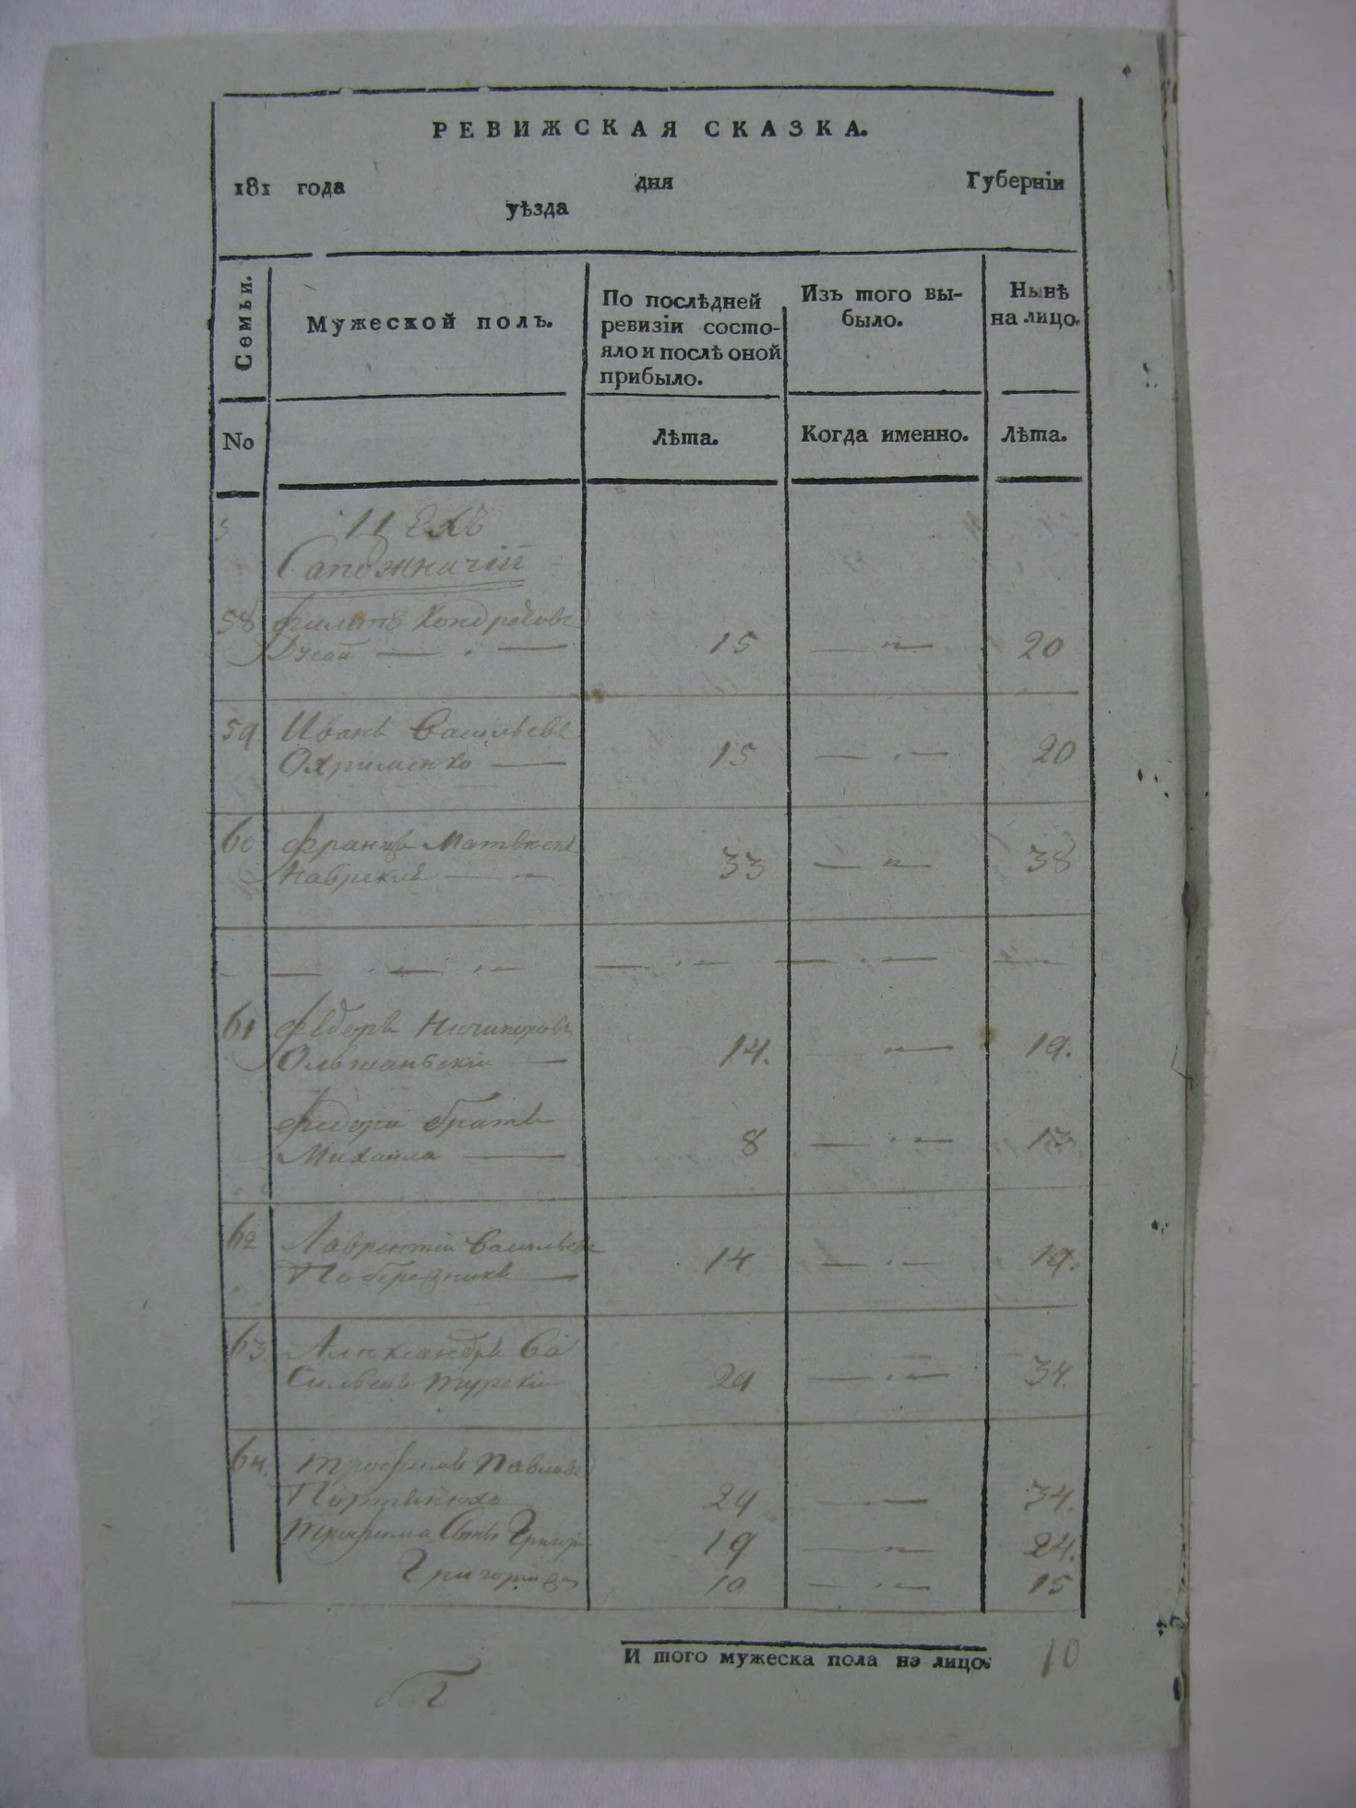 РЕВИЖСКАЯ СКАЗКА.
181 года дня Губернїи
уѣзда
Семьи.
Мужеской полъ.
По послѣдней
ревизїи состо-
яло и послѣ оной
прибыло.
Изъ того вы-
было.
Нынѣ
на лицо.
No
Лѣта.
Когда именно.
Лѣта.
Цехъ
Сапожничій
58 Кондратовъ
15 20
59 Иванъ Васильевъ
Охрименко 15 20
60 Францъ Матвеевъ
33 38
61 Федоръ Ничипоровъ
Ольшанскій 14. 19.
Федора братъ
Михайла 8 13
62 Лаврентій Васильевъ
Побережникъ 14 19.
63 Александръ Ва
сильевъ Турскій 29 34.
64. Трофимъ Павловъ
29 34.
Трофима 19 24.
10 15
И того мужеска пола на лицо: 10